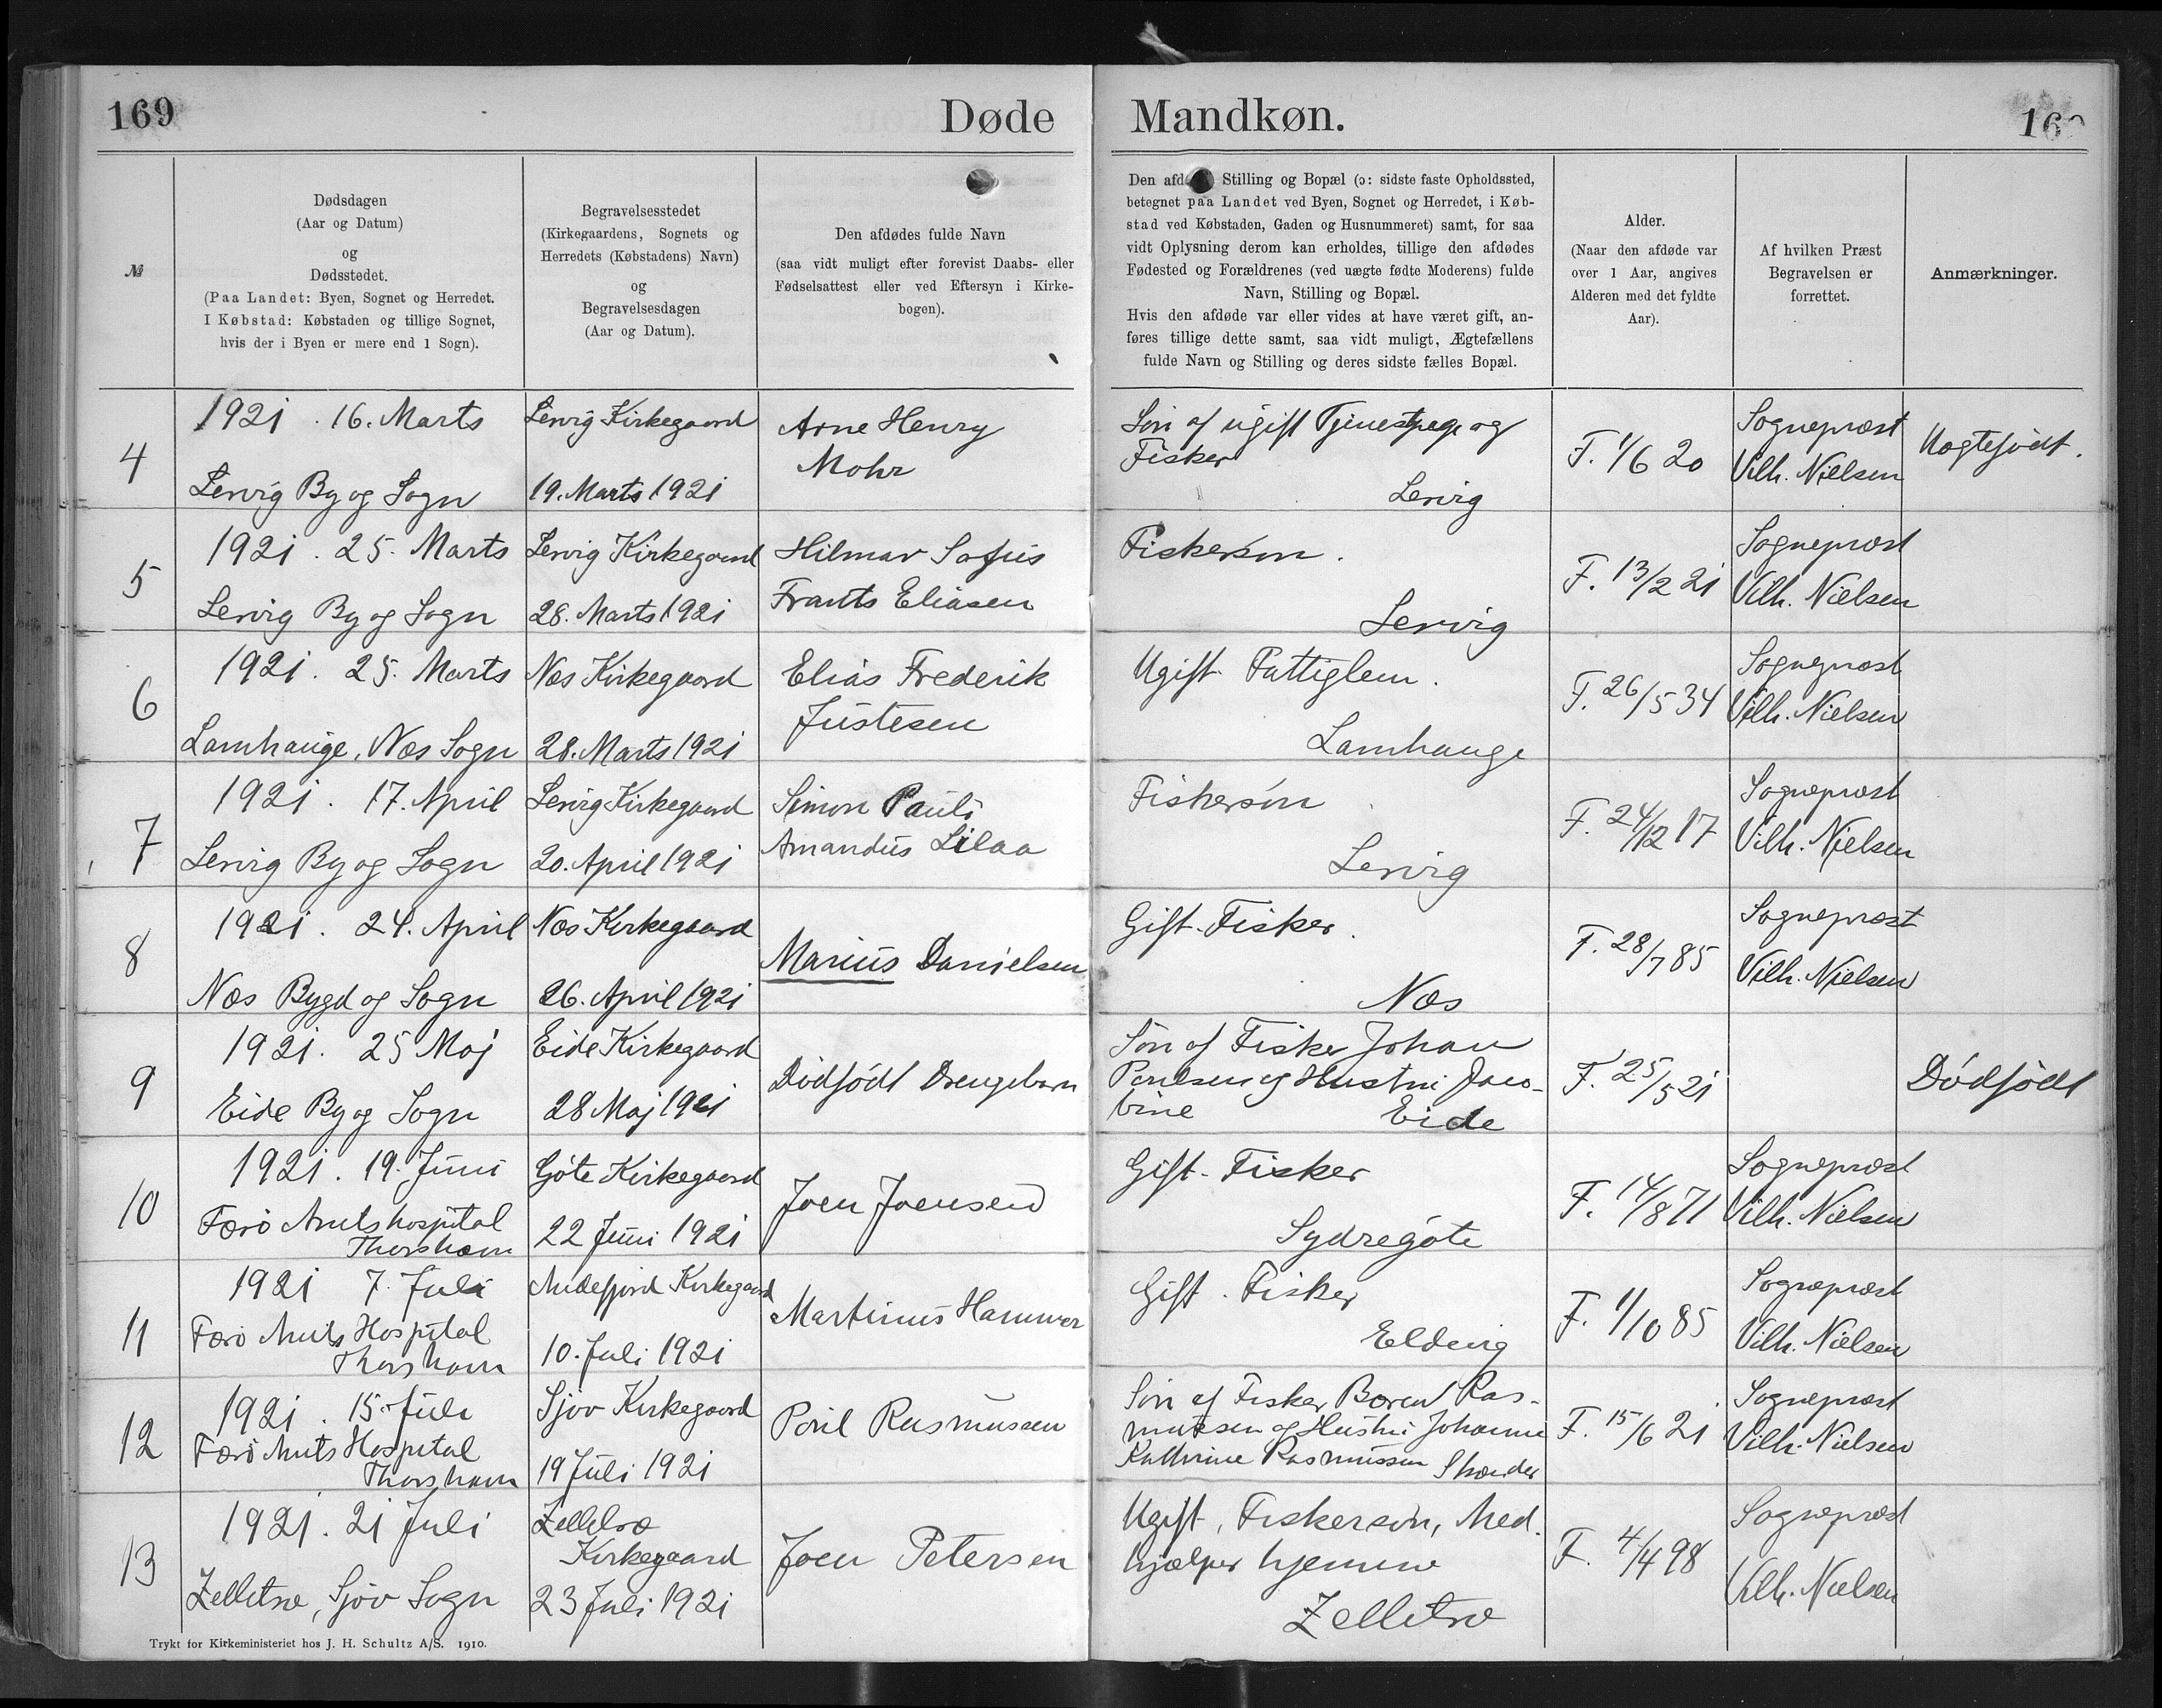 169
Døde
Mandkøn.
№
Dødsdagen
(Aar og Datum)
og
Dødsstedet.
(Paa Landet: Byen, Sognet og Herredet.
I Købstad: Købstaden og tillige Sognet,
hvis der i Byen er mere end 1 Sogn).
Begravelsesstedet
(Kirkegaardens, Sognets og
Herredets (Købstadens) Navn)
og
Begravelsesdagen
(Aar og Datum).
Den afdødes fulde Navn
(saa vidt muligt efter forevist Daabs- eller
Fødselsattest eller ved Eftersyn i Kirke-
bogen).
Den Stilling og Bopæl (ɔ: sidste faste Opholdssted,
betegnet paa Landet ved Byen, Sognet og Herredet, i Køb-
stad ved Købstaden, Gaden og Husnummeret) samt, for saa
vidt Oplysning derom kan erholdes, tillige den afdødes
Fødested og Forældrenes (ved uægte fødte Moderens) fulde
Navn, Stilling og Bopæl.
Hvis den afdøde var eller vides at have været gift, an-
føres tillige dette samt, saa vidt muligt, Ægtefællens
fulde Navn og Stilling og deres sidste fælles Bopæl.
Alder.
(Naar den afdøde var
over 1 Aar, angives
Alderen med det fyldte
Aar).
Af hvilken Præst
Begravelsen er
forrettet.
Anmærkninger.
4
1921. 16. Marts
Lervig By og Sogn
Lervig Kirkegaard
19. Marts 1921
Arne Henry
Mohr
Søn af ugift Tjenestepige og
Fisker
Lervig
F. 1/6 20
Sognepræst
Vilh. Nielsen
Uægtefødt.
5
1921. 25. Marts
Lervig By og Sogn
Lervig Kirkegaard
28. Marts 1921
Hilmar Sofus
Frants Eliasen
Fiskersøn.
Lervig
F. 13/2 21
Sognepræst
Vilh. Nielsen
6
1921. 25. Marts
Lamhauge, Næs Sogn
Næs Kirkegaard
28. Marts 1921
Elias Frederik
Justesen
Ugift Fattiglem.
Lamhauge
F. 26/5 34
Sognepræst
Vilh. Nielsen
7
1921. 17. April
Lervig By og Sogn
Lervig Kirkegaard
20. April 1921
Simon Pauli
Amandus Lilaa
Fiskersøn
Lervig
F. 24/12 17
Sognepræst
Vilh. Nielsen
8
1921. 24. April
Næs Bygd og Sogn
Næs Kirkegaard
26. April 1921
Marius Danielsen
Gift. Fisker.
Næs
F. 28/7 85
Sognepræst
Vilh. Nielsen
9
1921. 25 Maj
Eide By og Sogn
Eide Kirkegaard
28 Maj 1921
Dødfødt Drengebarn
Søn af Fisker Johan
Poulsen og Hustru Jaco-
bine Eide
F. 25/5 21
Dødfødt
10
1921. 19. Juni
Færø Amtshospital
Thorshavn
Gøte Kirkegaard
22 Juni 1921
Joen Joensen
Gift. Fisker
Sydregøte
F. 14/8 71
Sognepræst
Vilh. Nielsen
11
1921 7. Juli
Færø Amts Hospital
Thorshavn
Andefjord Kirkegaard
10. Juli 1921
Martinus Hammer
Gift. Fisker
Eldevig
F. 1/10 85
Sognepræst
Vilh. Nielsen
12
1921. 15. Juli
Færø Amts Hospital
Thorshavn
Sjov Kirkegaard
19 Juli 1921
Poul Rasmussen
Søn af Fisker Ras-
mussen og Hustru Johanne
Kathrine Rasmussen Strænder
F. 15/6 21
Sognepræst
Vilh. Nielsen
13
1921. 21 Juli
Zelletræ, Sjov Sogn
Zelletræ
Kirkegaard
23 Juli 1921
Joen Petersen
Ugift, Fiskersøn, Med-
hjælper hjemme
Zelletræ
F. 4/4 98
Sognepræst
Vilh. Nielsen
Trykt for Kirkeministeriet hos J. H. Schultz A/S. 1910.